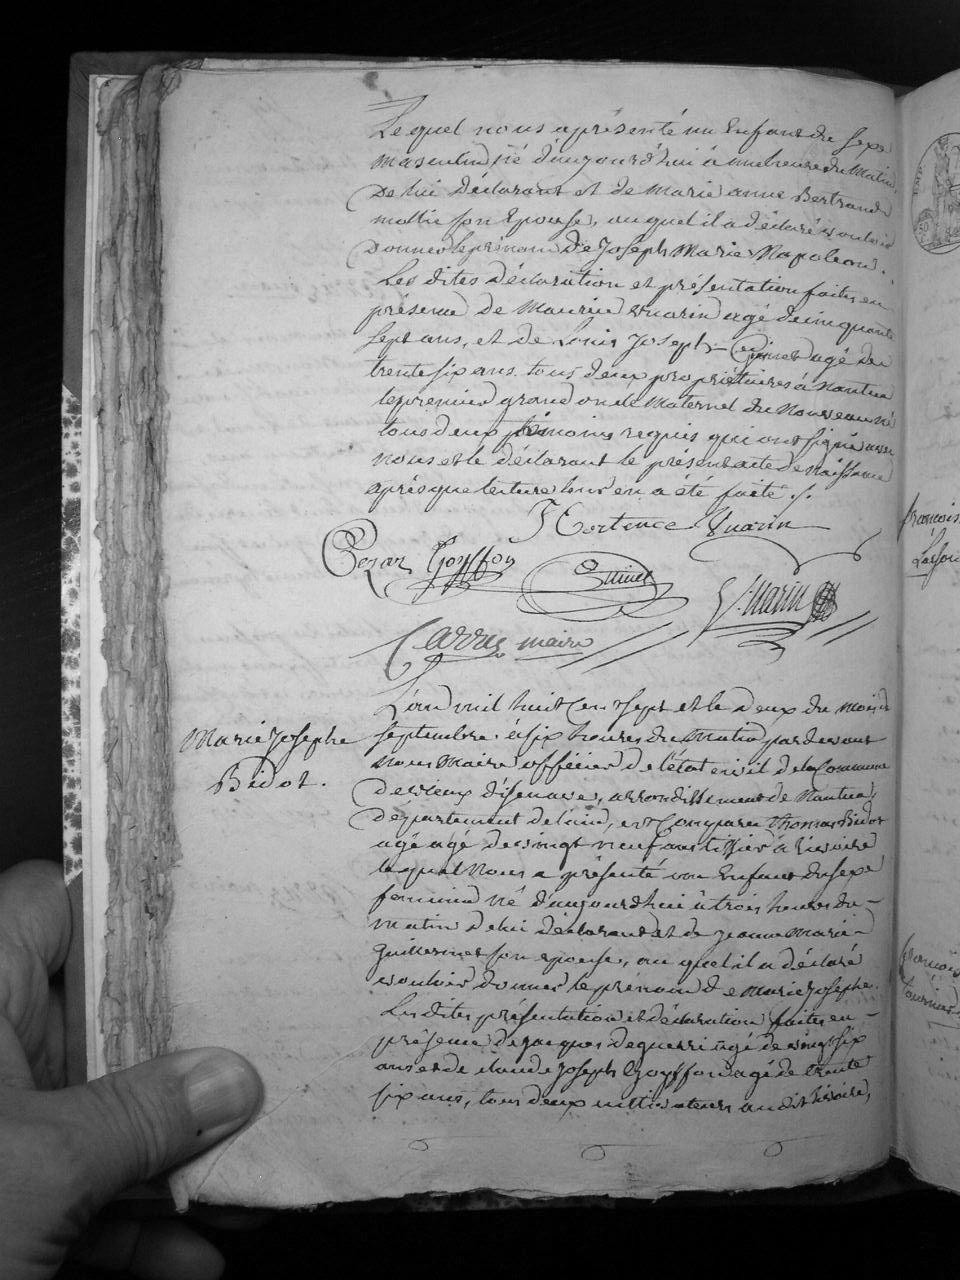 Lequel nous a présenté un Enfant du Sexe
masculin né d'aujourd'hui à une heure du Matin
De lui Déclarant et de Marie anne Bertrand
son Epouse, auquel il a déclaré vouloir
Donner le prénom De Joseph Marie Napoléon.
Les dites Déclaration et présentation faites en
présence De Maurice agé de cinquante
Sept ans, et de Louis Joseph agé de
trente six ans tous deux propriétaires à Nantua
le premier grand oncle Maternel du Nouveau né
tous deux témoins requis qui ont signé avec
nous et le déclarant le présent acte De Naissance
après que lecture leur en a été faite ./.
Hortence
Cezar Goyffon
Carrus maire
L'an mil huit Cent Sept et le Deux du mois de
Septembre à six heures du Matin par devant
Nous Maire officier De l'état civil de la Commune
De vieux d'isenave, arrondissement de Nantua,
Marie Josephe
Bidot.
Département de l'ain, est Comparu thomas Bidot
agé agé de vingt neuf ans à
lequel Nous a présenté un Enfant du sexe
feminin né d'aujourd'hui à trois heures du-
matin de lui déclarant et de jeanne Marie-
guillermet son epouse, auquel il a déclaré
vouloir donner le prénom de Marie Josephe.
Les dites présentation et déclaration faites en-
présence De jacques deguerri agé de vingt six
ans et de claude Joseph Goyffon agé de trente
six ans, tous deux cultivateurs audit
françois